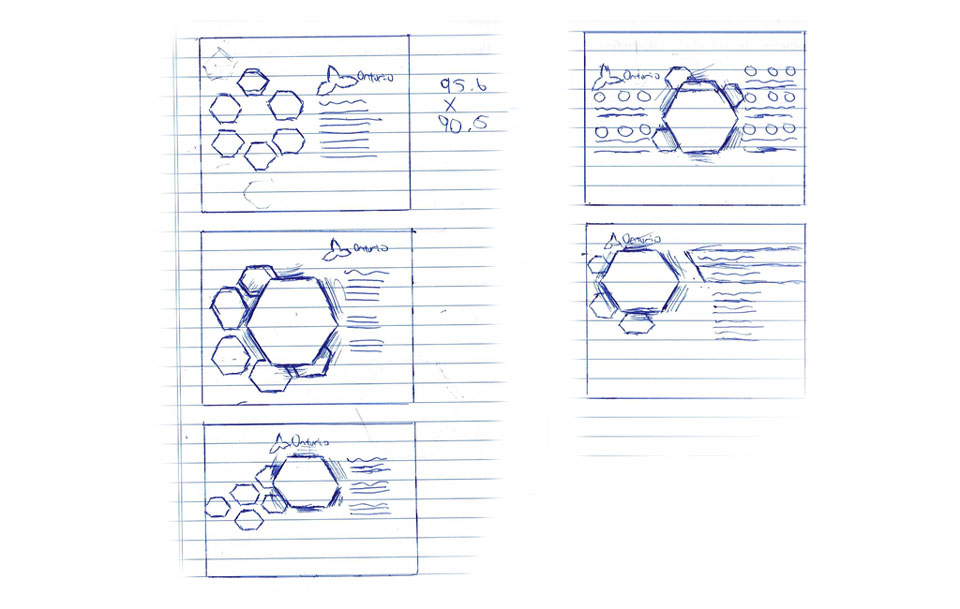 Ontario
95.6
X
90.5
Ontario
Ontario
Ontario
Ontario